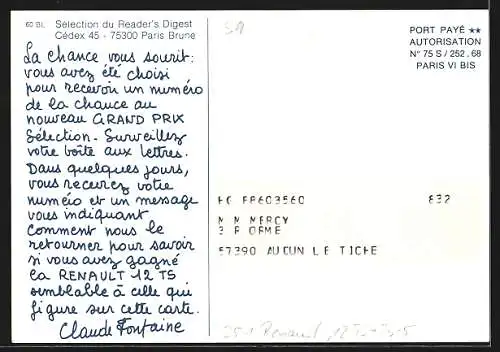 60 BL Sélection du Reader's Digest
Cédex 45 - 75300 Paris Brune
La chance vous sourit :
vous avez été choisi
pour recevoir un numéro
de la chance au
nouveau GRAND PRIX
Sélection. Surveillez
votre boîte aux lettres.
Dans quelques jours,
vous recevrez votre
numéro et un message
vous indiquant
comment nous le
retourner pour savoir
si vous avez gagné
la RENAULT 12 TS
semblable à celle qui
figure sur cette carte.
Claude Fontaine
PORT PAYÉ ★★
AUTORISATION
N° 75 S / 252.68
PARIS VI BIS
FP603560 832
M M MERCY
3 R ORME
57390 AUDUN LE TICHE
Renault 12